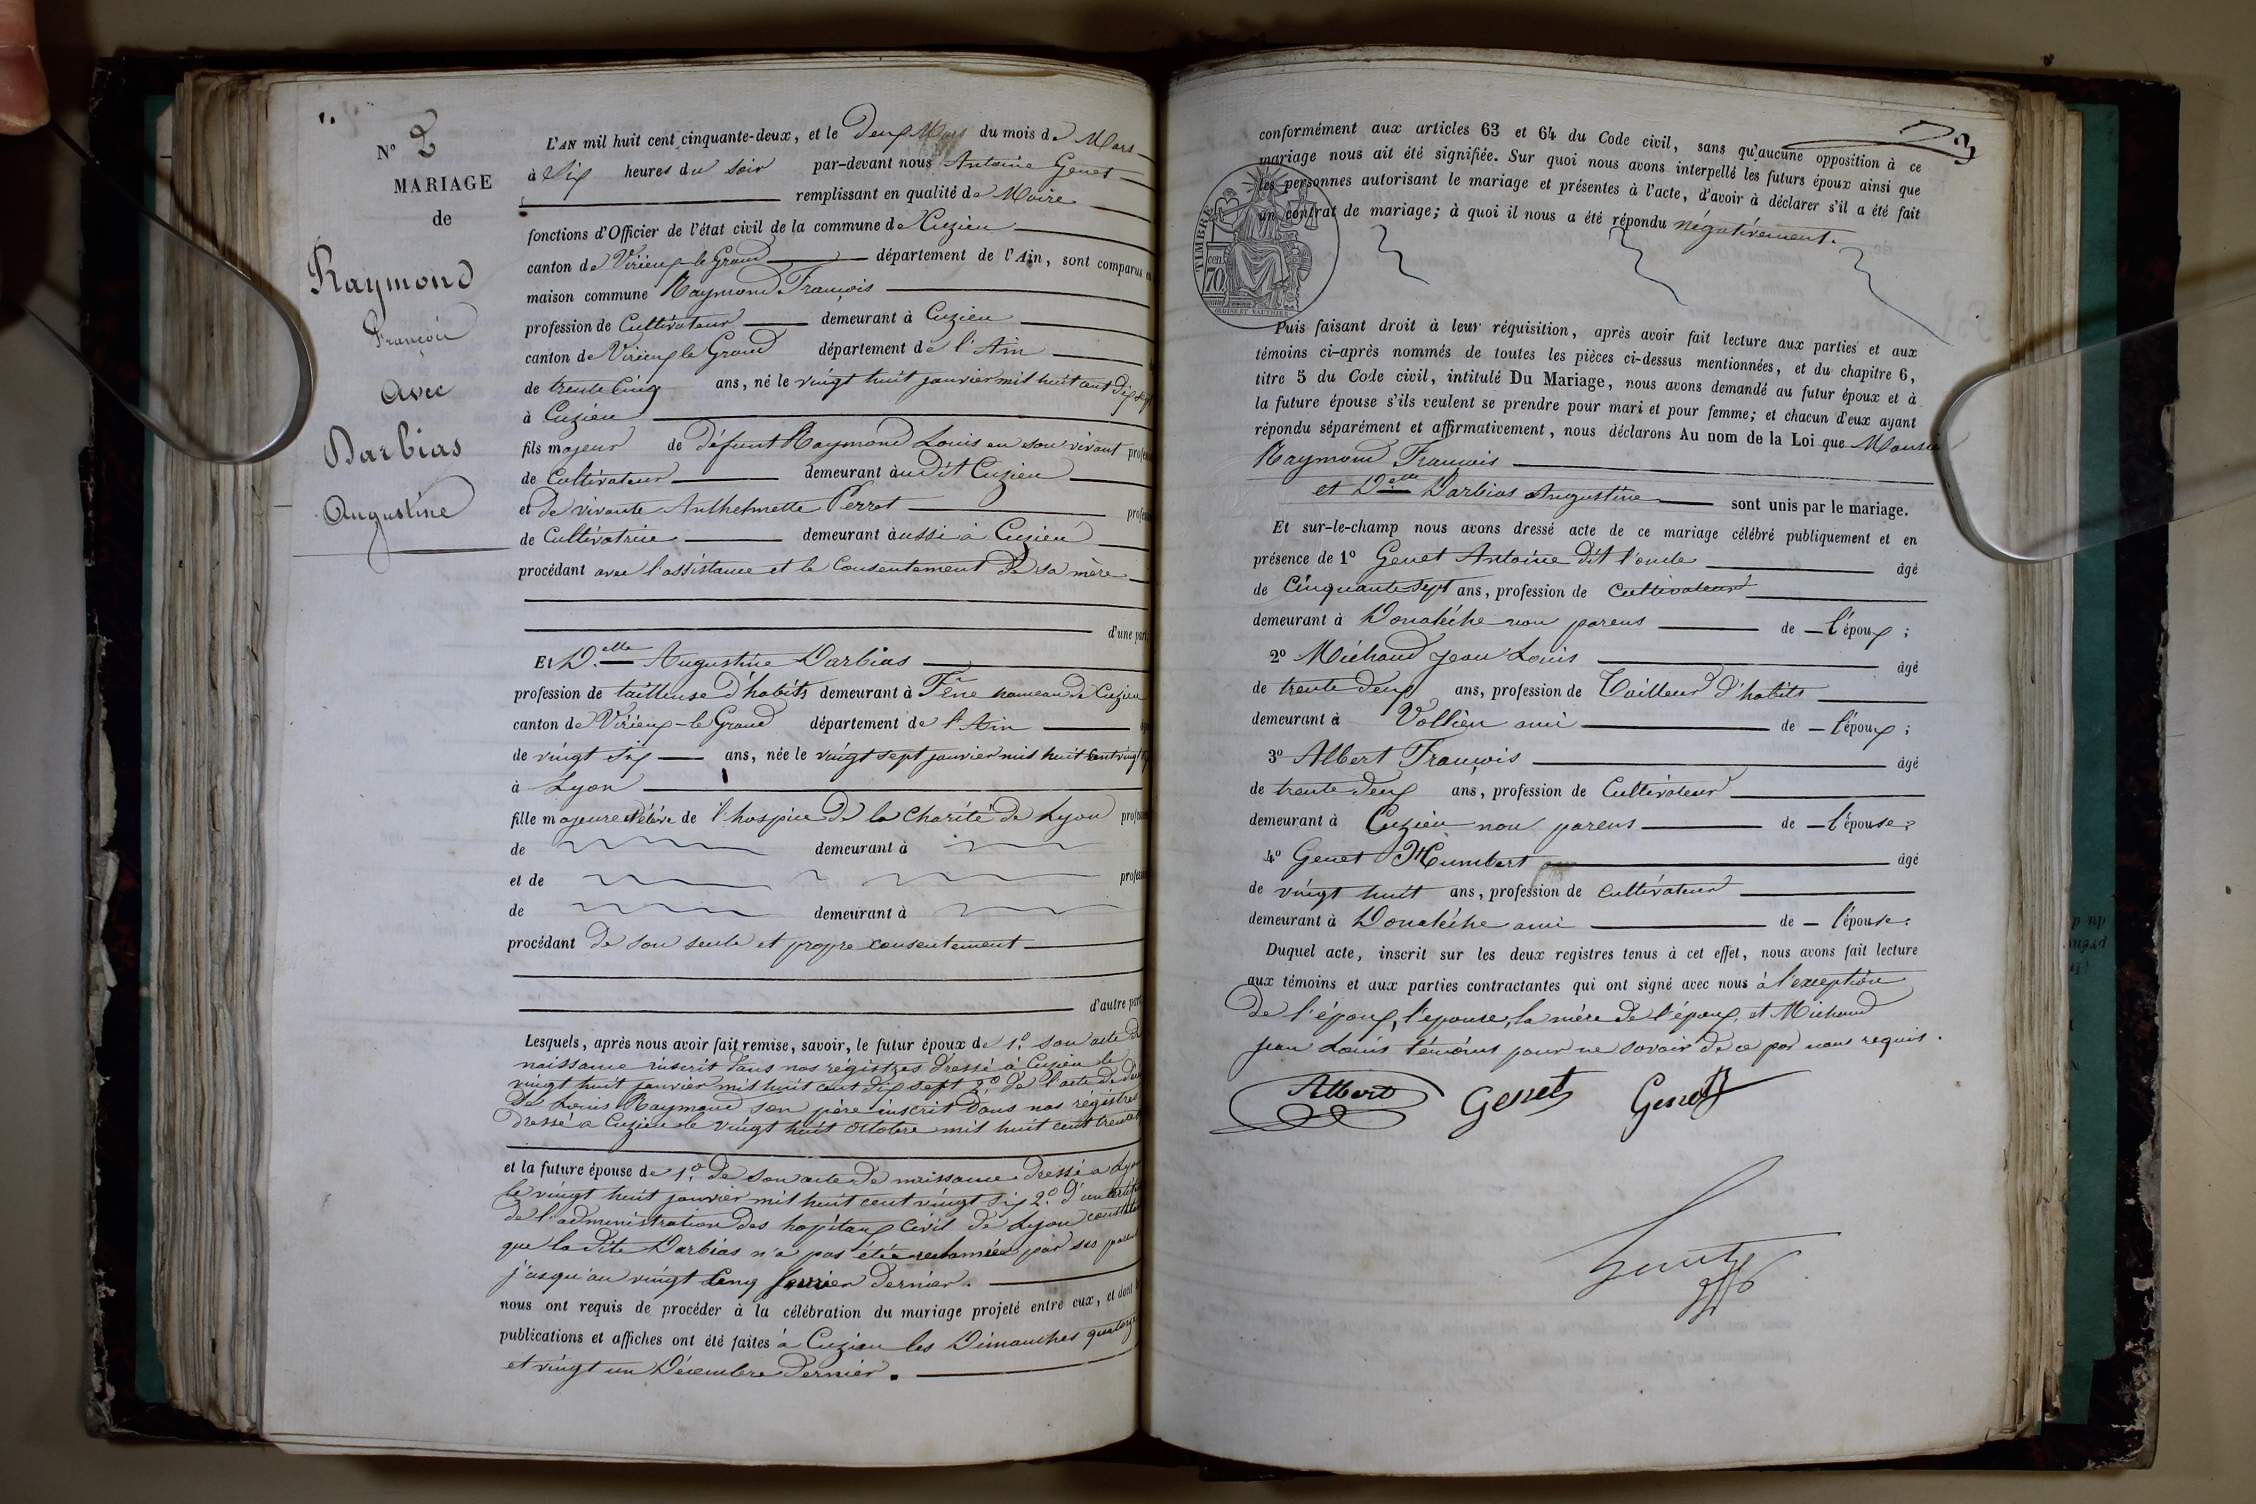 N° 2
MARIAGE
de
Raymond
François
avec
Darbias
Augustine
L'AN mil huit cent cinquante-deux, et le Deux Mars du mois de Mars
à Six heures du soir par-devant nous Antoine Genet
remplissant en qualité de Maire
fonctions d'Officier de l'état civil de la commune de Cuzieu
canton de Virieux le Grand département de l'Ain, sont comparus en
maison commune Raymond François
profession de Cultivateur demeurant à Cuzieu
canton de Virieux le Grand département de l'Ain
de trente Cinq ans, né le vingt huit janvier mil huit cent dix sept
à Cuzieu
fils majeur de défunt Raymond Louis en son vivant profes
de Cultivateur demeurant àudit Cuzieu
et de vivante Anthelmette Perret profes
de Cultivatrice demeurant àussi à Cuzieu
procédant avec l'assistance et le Consentement de sa mère
d'une part
Et D.elle Augustine Darbias
profession de tailleuse d'habits demeurant à hameau de Cuzieu
canton de Virieux-le Grand département de l'Ain
de vingt six ans, née le vingt sept janvier mil huit Cent vingt six
à Lyon
fille majeure élève de l'hospice de la Charité de Lyon profes
de demeurant à
et de profes
de demeurant à
procédant de son seule et propre consentement
d'autre part
Lesquels, après nous avoir fait remise, savoir, le futur époux de 1° son acte de
naissance inscrit dans nos régistres dressé à Cuzieu le
vingt huit janvier mil huit cent dix sept 2° de l'acte de dé
cé Louis Raymond son père inscrit dans nos registres
dressé à Cuzieu le vingt huit octobre mil huit cent trente
et la future épouse de 1° de son acte de naissance dressé à Lyon
le vingt huit janvier mil huit cent vingt six 2° d'un certif
de l'administration des hopitaux Civil de Lyon constat
que la dite Darbias n'a pas été réclamée par ses paren
jusqu'au vingt Cinq fevrier dernier.
nous ont requis de procéder à la célébration du mariage projeté entre eux, et dont
publications et affiches ont été faites à Cuzieu les Dimanches quatorze
et vingt un Décembre dernier.
conformément aux articles 63 et 64 du Code civil, sans qu'aucune opposition à ce
mariage nous ait été signifiée. Sur quoi nous avons interpellé les futurs époux ainsi que
les personnes autorisant le mariage et présentes à l'acte, d'avoir à déclarer s'il a été fait
un contrat de mariage; à quoi il nous a été répondu négativement.
TIMBRE
cen.
70
Puis faisant droit à leur réquisition, après avoir fait lecture aux parties et aux
témoins ci-après nommés de toutes les pièces ci-dessus mentionnées, et du chapitre 6,
titre 5 du Code civil, intitulé Du Mariage, nous avons demandé au futur époux et à
la future épouse s'ils veulent se prendre pour mari et pour femme; et chacun d'eux ayant
répondu séparément et affirmativement, nous déclarons Au nom de la Loi que Monsieu
Raymond François
et D.elle Darbias Augustine sont unis par le mariage.
Et sur-le-champ nous avons dressé acte de ce mariage célébré publiquement et en
présence de 1° Genet Antoine dit l'oncle âgé
de Cinquante sept ans, profession de cultivateur
demeurant à non parens de l'époux;
2° Michaud Jean Louis âgé
de trente deux ans, profession de Tailleur d'habits
demeurant à Vollien ami de l'époux;
3° Albert François âgé
de trente deux ans, profession de Cultivateur
demeurant à Cuzieu non parens de l'épouse;
4° Genet Humbert âgé
de vingt huit ans, profession de cultivateur
demeurant à ami de l'épouse.
Duquel acte, inscrit sur les deux registres tenus à cet effet, nous avons fait lecture
aux témoins et aux parties contractantes qui ont signé avec nous à l'exception
de l'époux, l'épouse, la mère de l'époux et Michaud
Jean Louis témoins pour ne savoir de ce par nous requis.
Albert Genet Genet